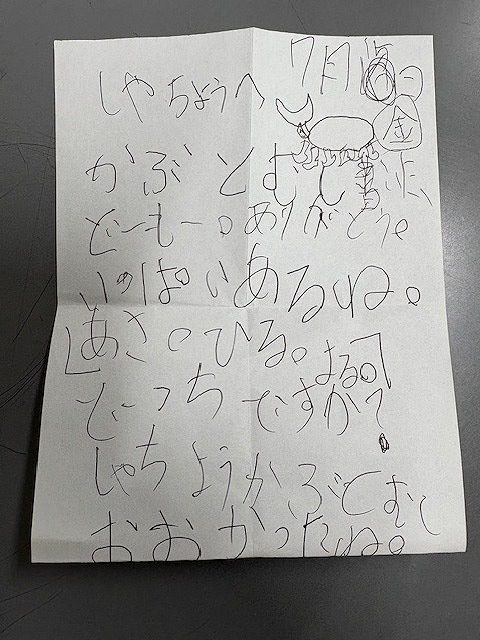 7月 日
金
しやちょうへ
かぶとむし
どーもー。ありがとう。
いっぱいあるね。
「あさ。ひる。よる。」
どーっちですか?
しゃちょうかぶとむし
おおかったね。